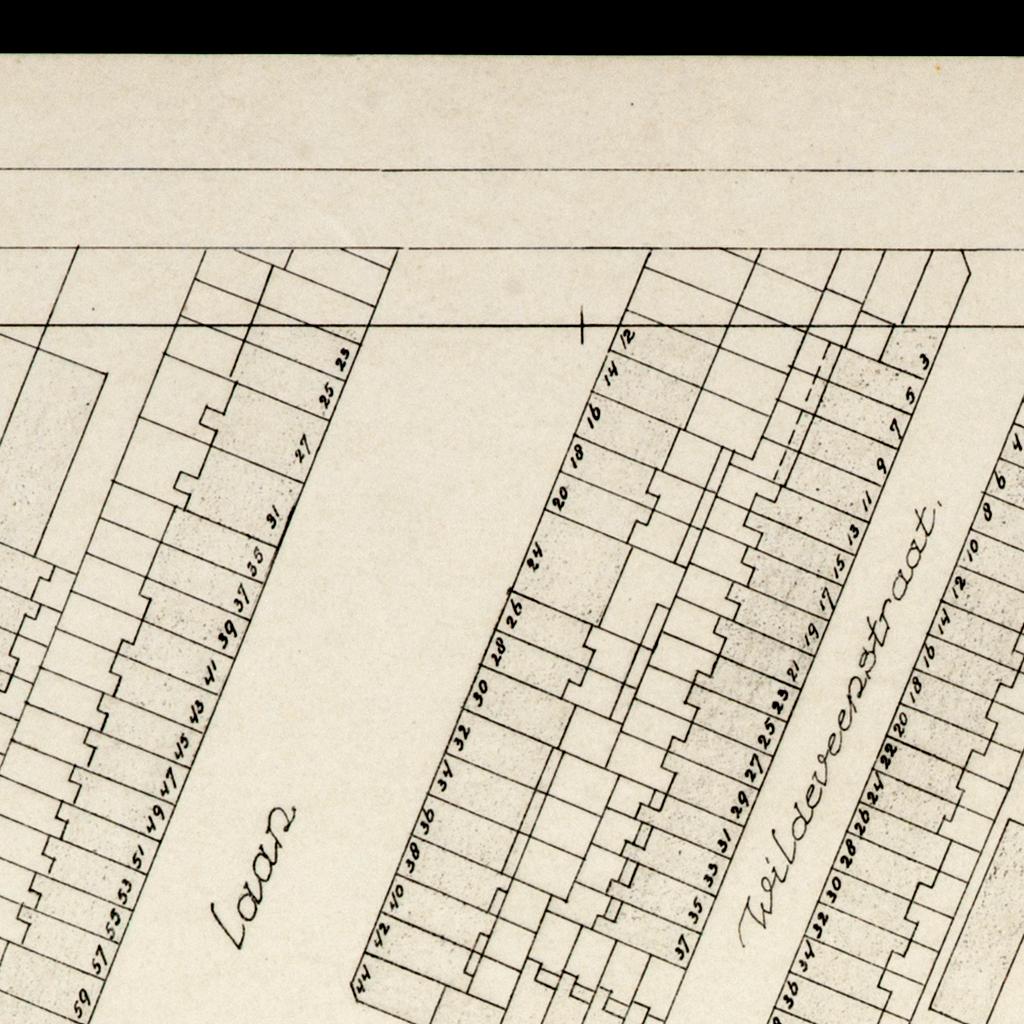 23
25
27
31
35
37
39
41
43
45
47
49
51
53
55
57
59
Laan.
12
14
16
18
20
24
26
28
30
32
34
36
38
40
42
44
3
5
7
9
11
13
15
17
19
21
23
25
27
29
31
33
35
37
Wildeveenstraat.
4
6
8
10
12
14
16
18
20
22
24
26
28
30
32
34
36